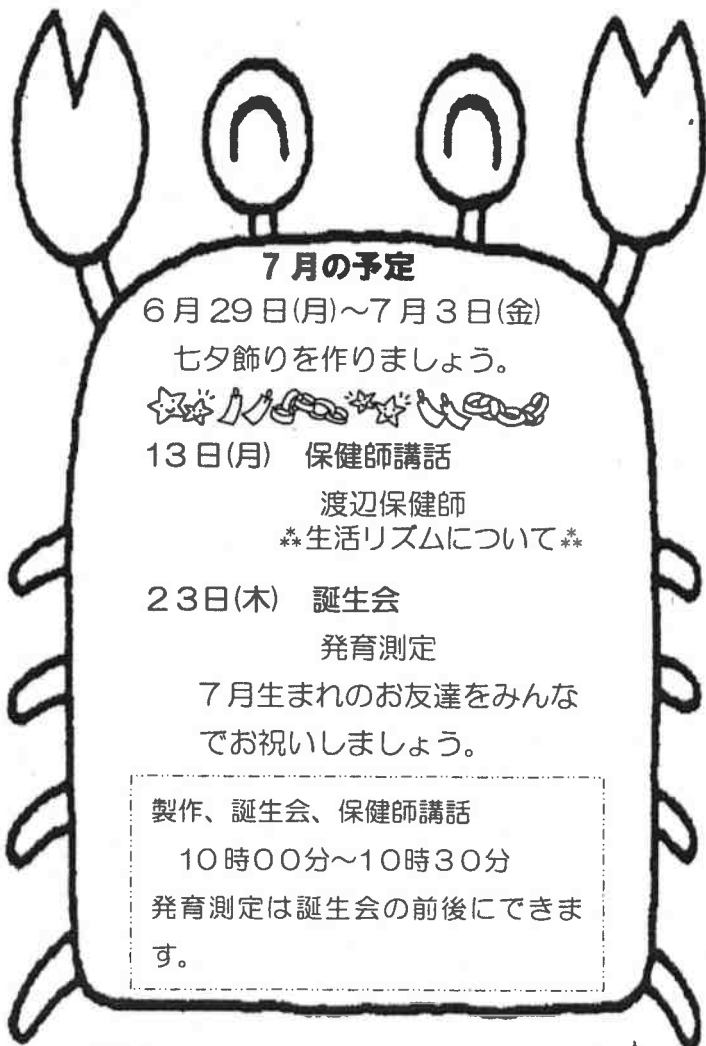 7月の予定
6月29日(月)～7月3日(金)
七夕飾りを作りましょう。
13日(月) 保健師講話
渡辺保健師
⁂生活リズムについて⁂
23日(木) 誕生会
発育測定
7月生まれのお友達をみんな
でお祝いしましょう。
製作、誕生会、保健師講話
10時00分～10時30分
発育測定は誕生会の前後にできま
す。